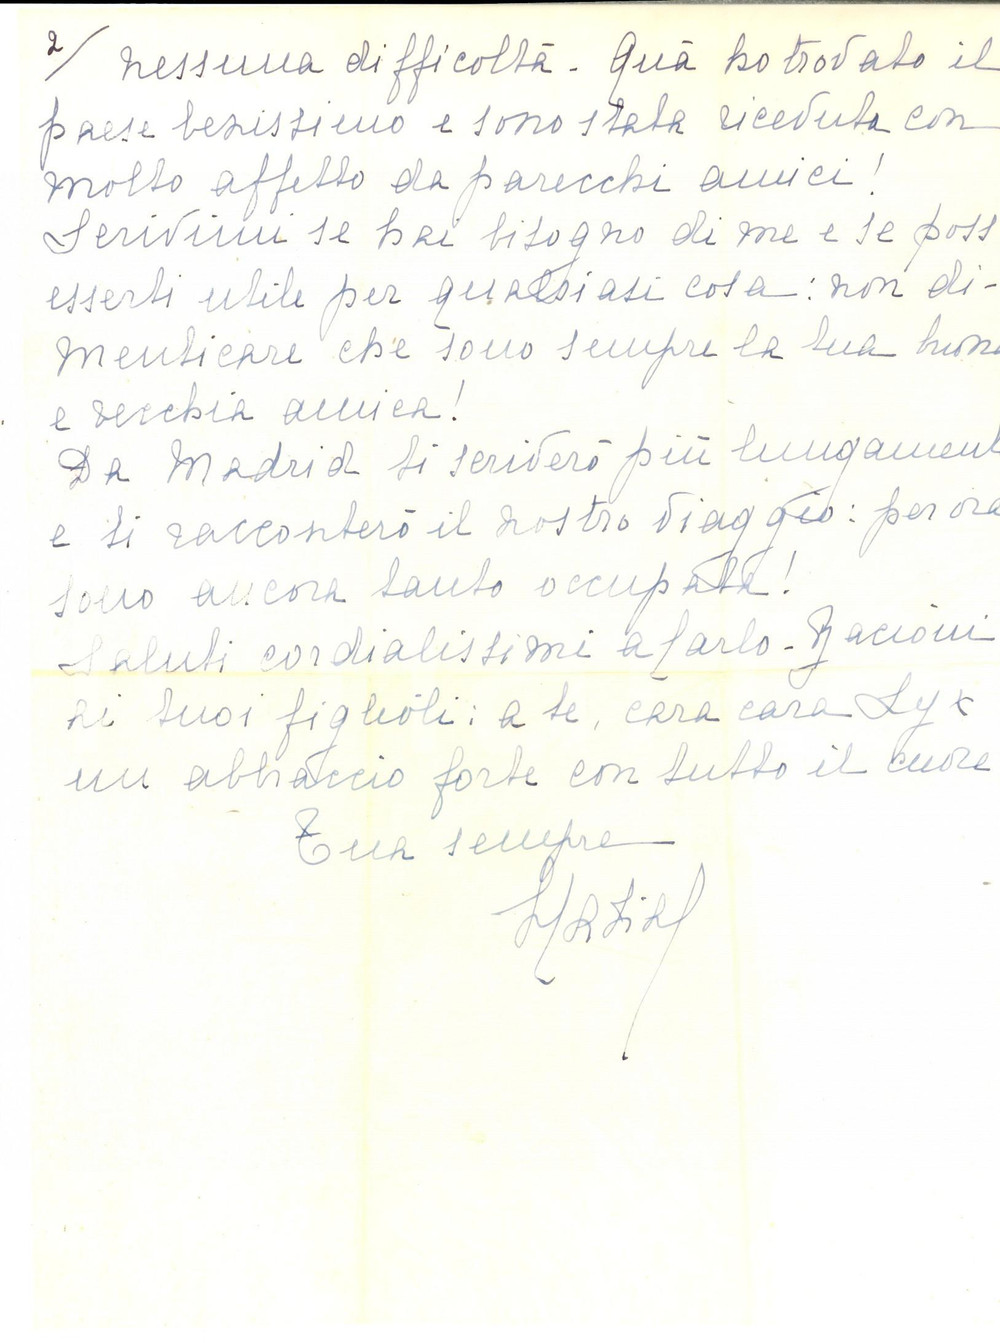 2/ nessuna difficoltà - Quà ho trovato il
paese benissimo e sono stata ricevuta con
molto affetto da parecchi amici!
Scrivimi se hai bisogno di me e se poss
esserti utile per qualsiasi cosa: non di-
menticare che sono sempre la tua buona
e vecchia amica!
Da Madrid ti scriverò più lungament
e ti racconterò il nostro viaggio: per ora
sono ancora tanto occupata!
Saluti cordialissimi a Carlo - Bacioni
ai tuoi figlioli: a te, cara cara Lyx
un abbraccio forte con tutto il cuore
Tua sempre